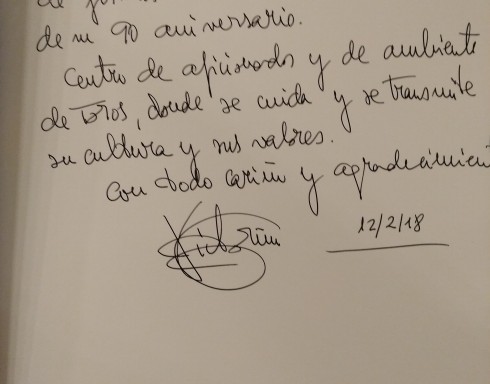 de su 90 aniversario.
Centro de aficionados y de ambiente
de toros, donde se cuida y se transmite
su cultura y sus valores.
Con todo cariño y agradecimien
Victorino
12/2/18